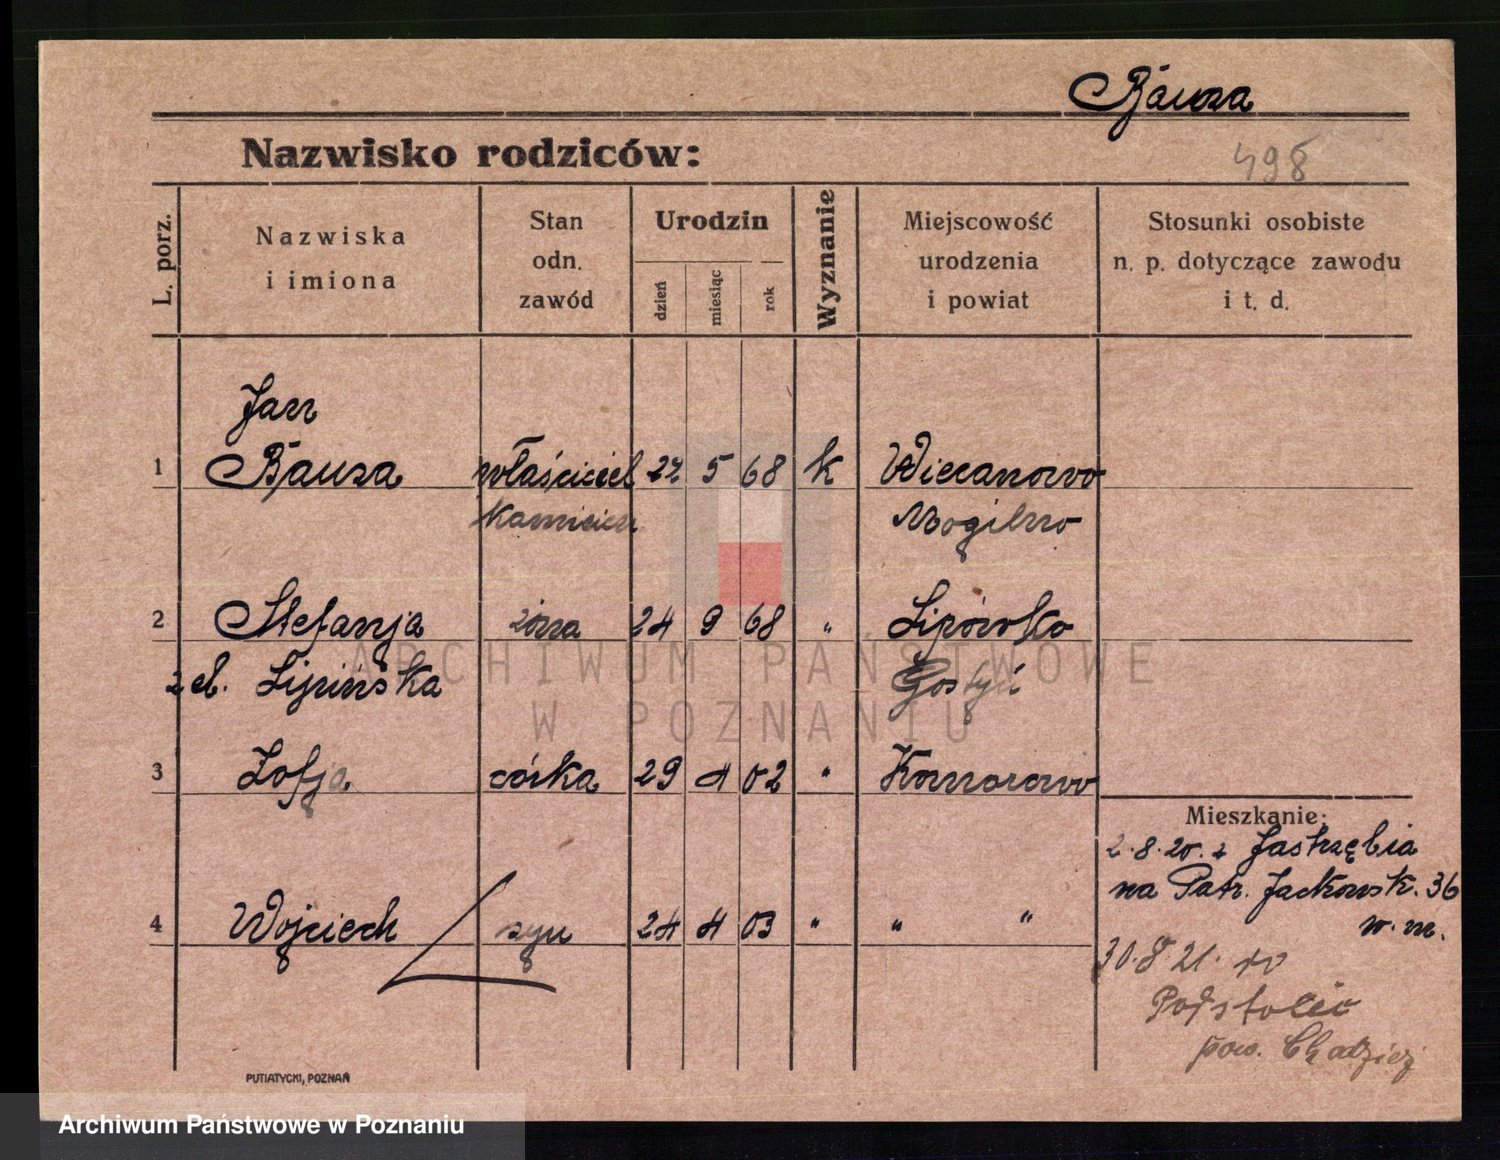 Bauza
Nazwisko rodziców:
498
L. porz.
Nazwiska
i imiona
Stan
odn.
zawód
Urodzin
dzień
miesiąc
rok
Wyznanie
Miejscowość
urodzenia
i powiat
Stosunki osobiste
n. p. dotyczące zawodu
i t. d.
Jan
1 Bauza właściciel 5 68 k Wiecanowo
Kamienicy Mogilno
2 Stefanja żona 24 9 68 " Lipówko
z d. Lipińska Gostyń
3 Zofja córka 29 4 02 " Komorowo
4 Wojciech syn 24 4 03 " " "
Mieszkanie:
2.8.20. z Jastrzębia
na Patr. Jackowsk. 36
w. m.
30.8 21. do
Podstolic
pow. Chodzież
PUTIATYCKI, POZNAŃ
ARCHIWUM PAŃSTWOWE
W POZNANIU
Archiwum Państwowe w Poznaniu